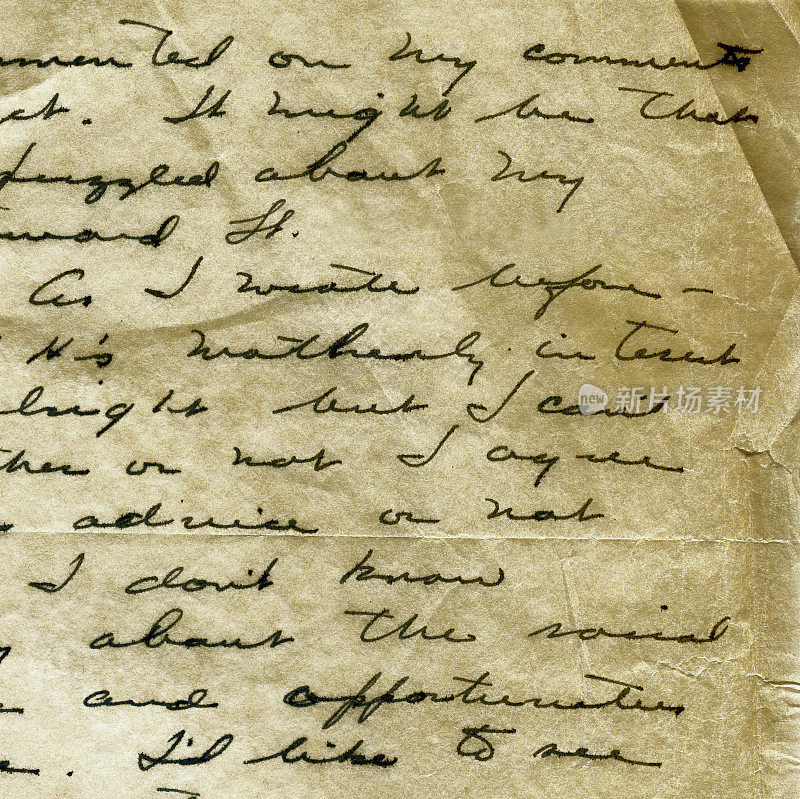 mmented on my comments
ct. It might be that
puzzled about my
toward It.
As I wrote before -
It's motherly interest
alright but I can't
ther or not I agree
advice or not
I don't know
about the social
and opportunities
e. I'd like to see
new 新片场素材